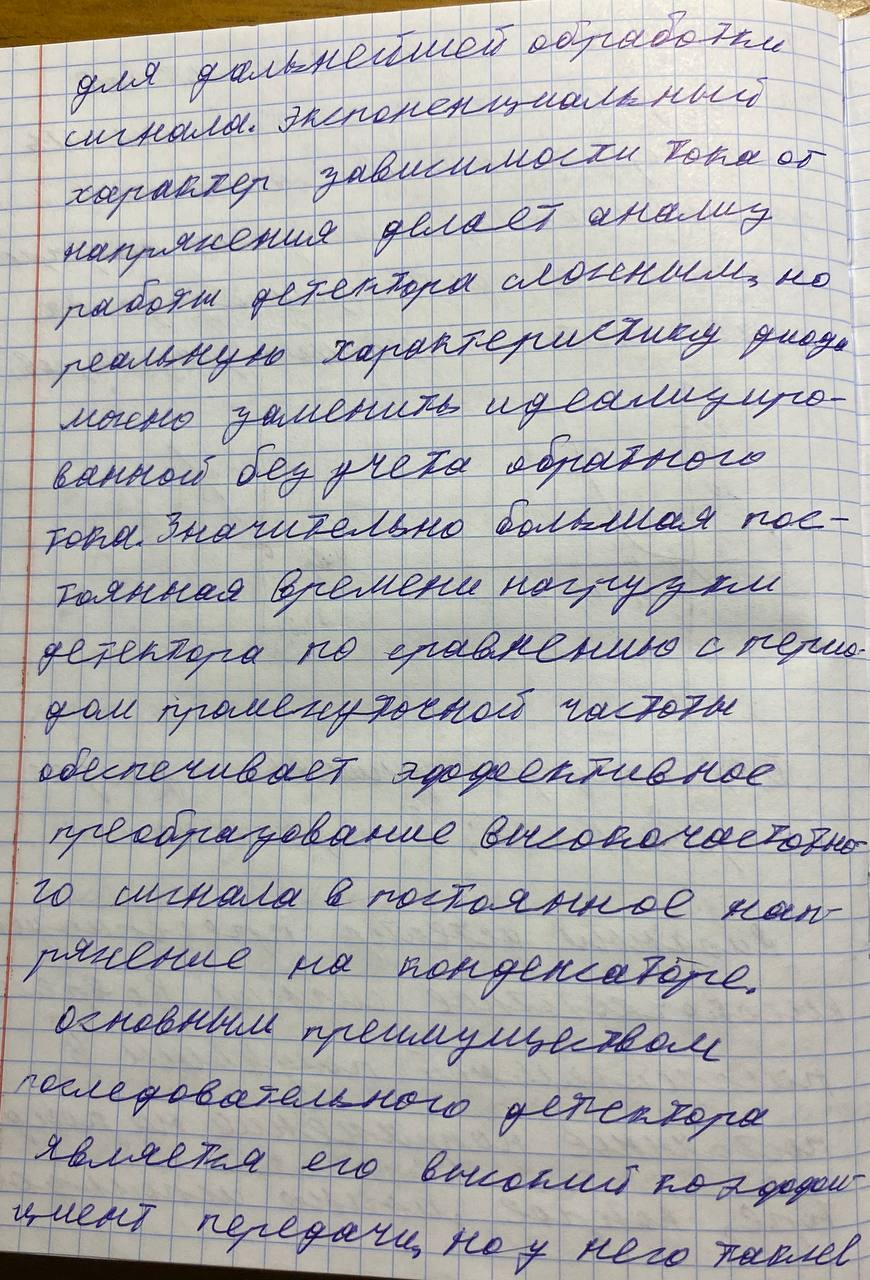 для дальнейшей обработки
сигнала. Экспоненциальный
характер зависимости тока от
напряжения делает анализ
работы детектора сложным, но
реальную характеристику диода
можно заменить идеализиро-
ванной без учета обратного
тока. Значительно большая пос-
тоянная времени нагрузки
детектора по сравнению с перио-
дом промежуточной частоты
обеспечивает эффективное
преобразование высокочастотно-
го сигнала в постоянное нап-
ряжение на конденсаторе.
Основным преимуществом
последовательного детектора
является его высокий коэффи-
циент передачи, но у него также